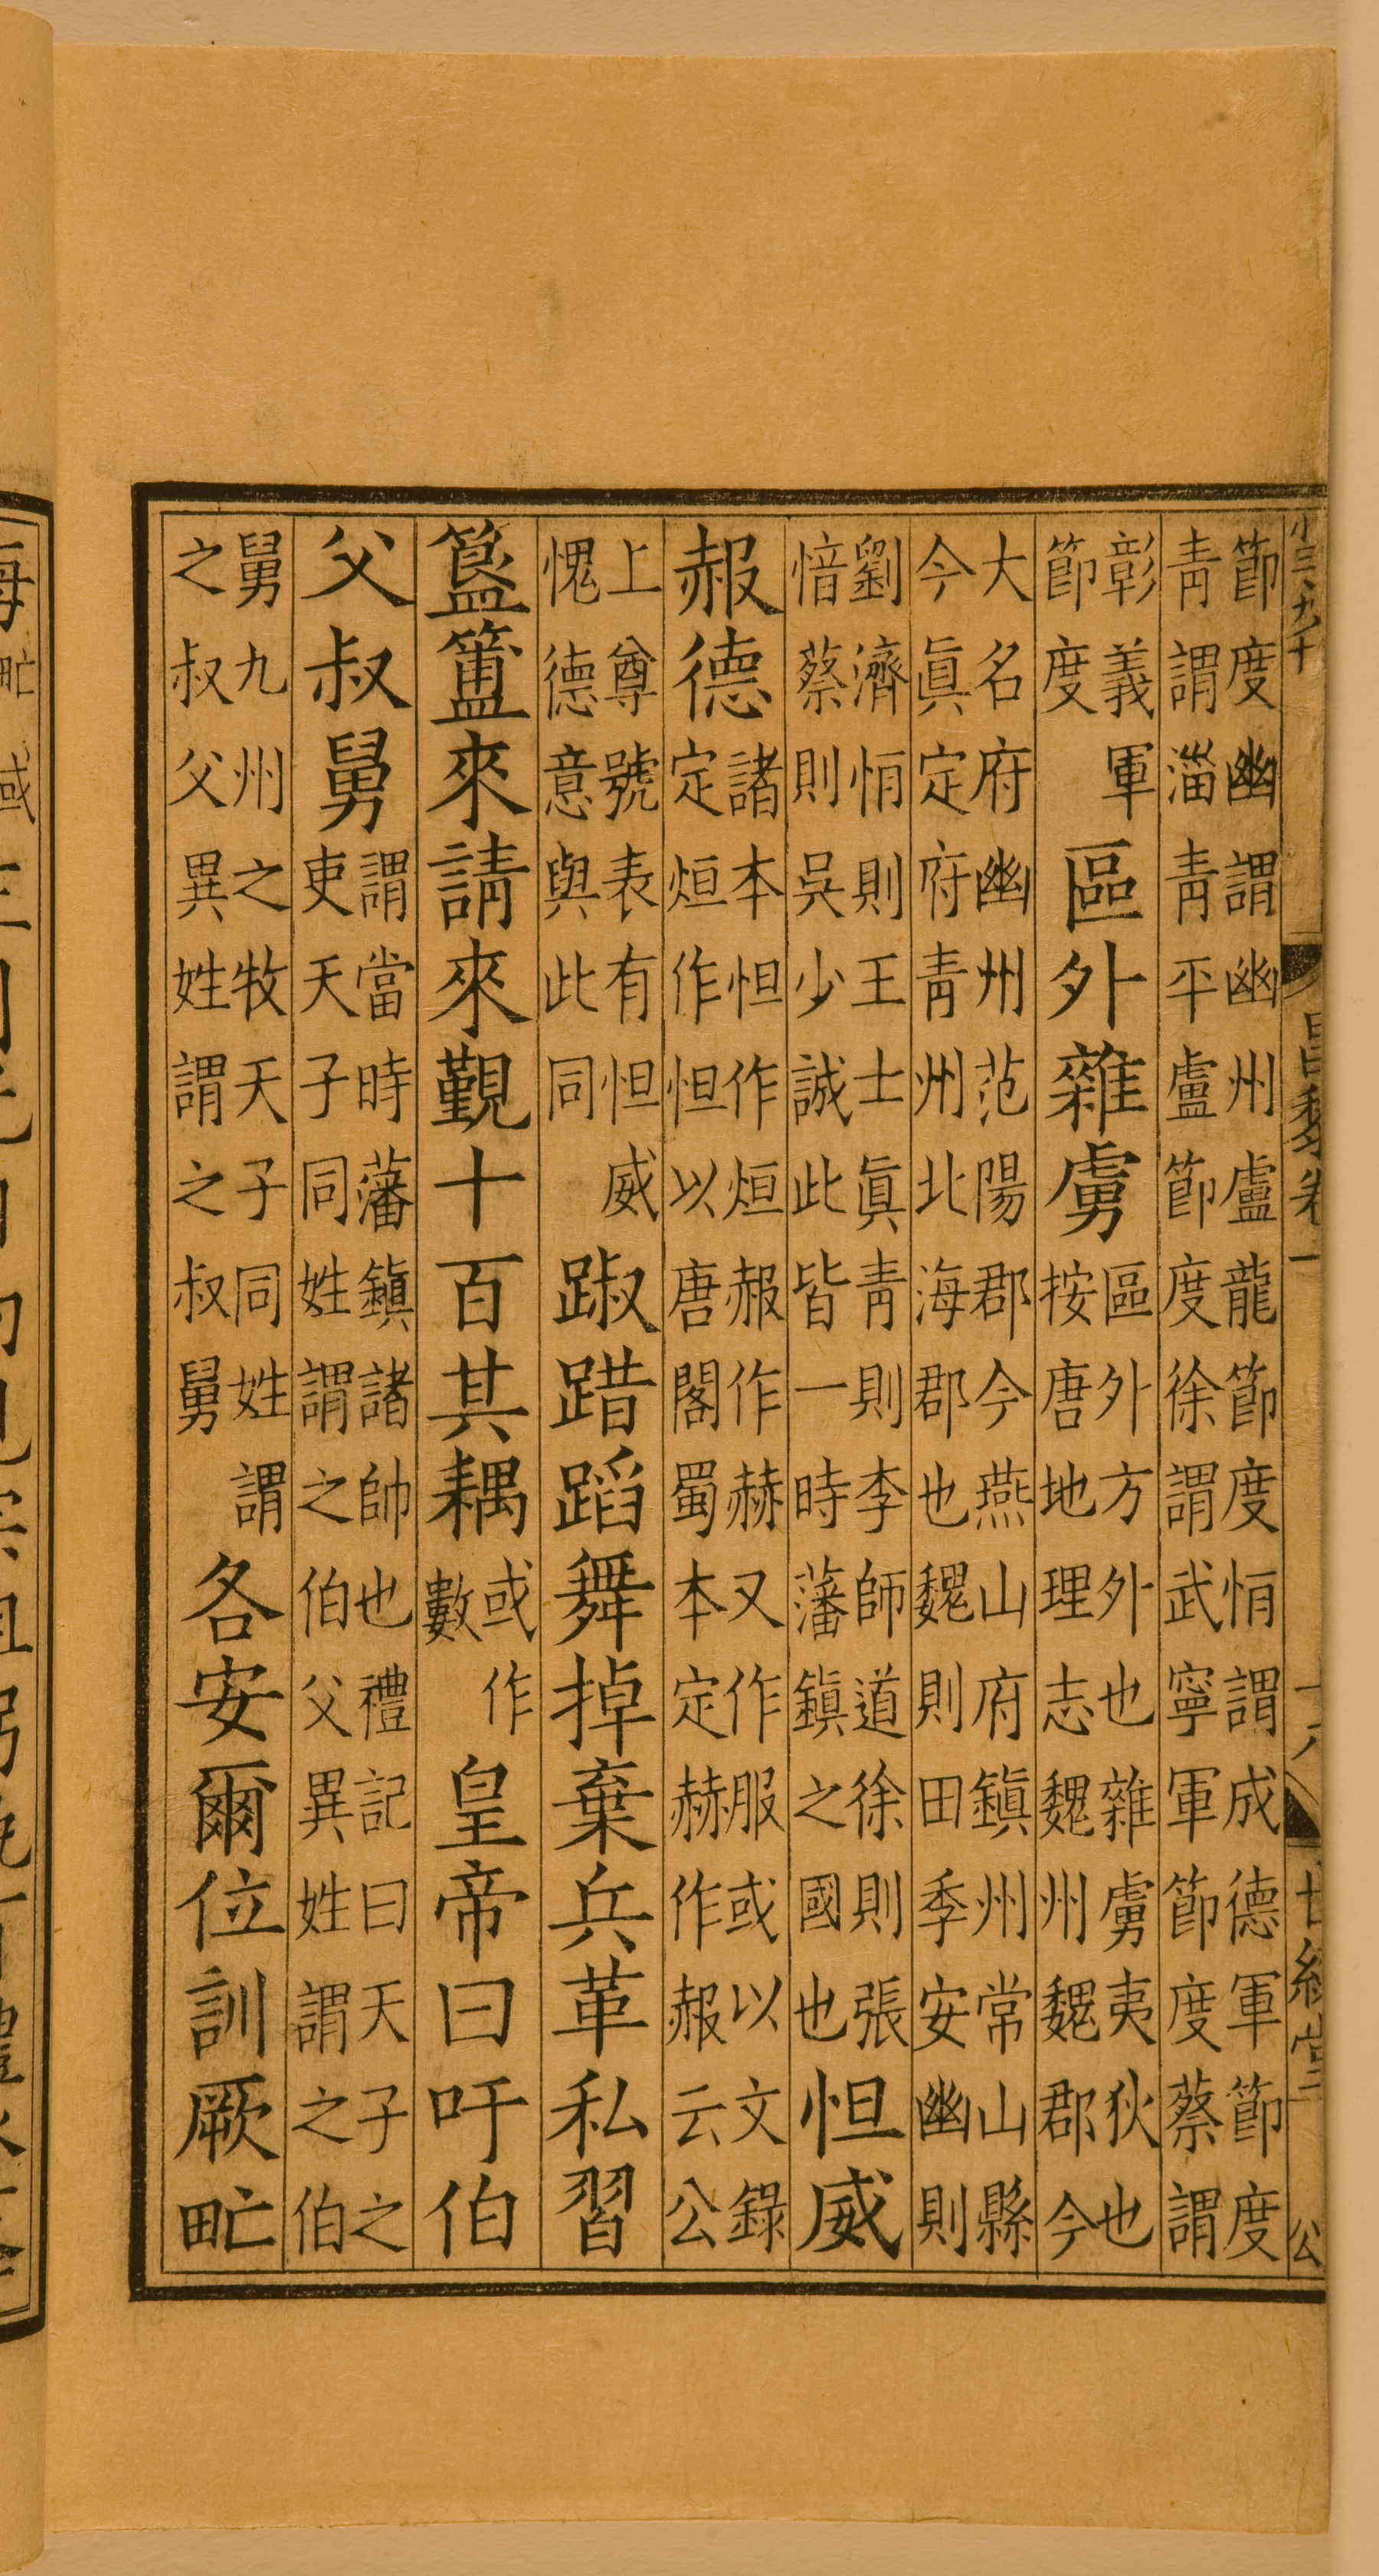 小三九十
昌黎卷一
世綵堂
公
節度幽謂幽州盧龍節度悁謂成德軍節度
靑謂淄靑平盧節度徐謂武寧軍節度蔡謂
彰義軍
節度
區外雜虜
區外方外也雜虜夷狄也
按唐地理志魏州魏郡今
大名府幽州范陽郡今燕山府鎭州常山縣
今眞定府靑州北海郡也魏則田季安幽則
劉濟悁則王士眞靑則李師道徐則張
愔蔡則吳少誠此皆一時藩鎭之國也
怛威
赧德
諸本怛作烜赧作赫又作服或以文錄
定烜作怛以唐閣蜀本定赫作赧云公
上尊號表有怛威
愧德意與此同
踧踖蹈舞掉棄兵革私習
簋簠來請來覲十百其耦
或作
數
皇帝曰吁伯
父叔舅
謂當時藩鎭諸帥也禮記曰天子之
吏天子同姓謂之伯父異姓謂之伯
舅九州之牧天子同姓謂
之叔父異姓謂之叔舅
各安爾位訓厥甿